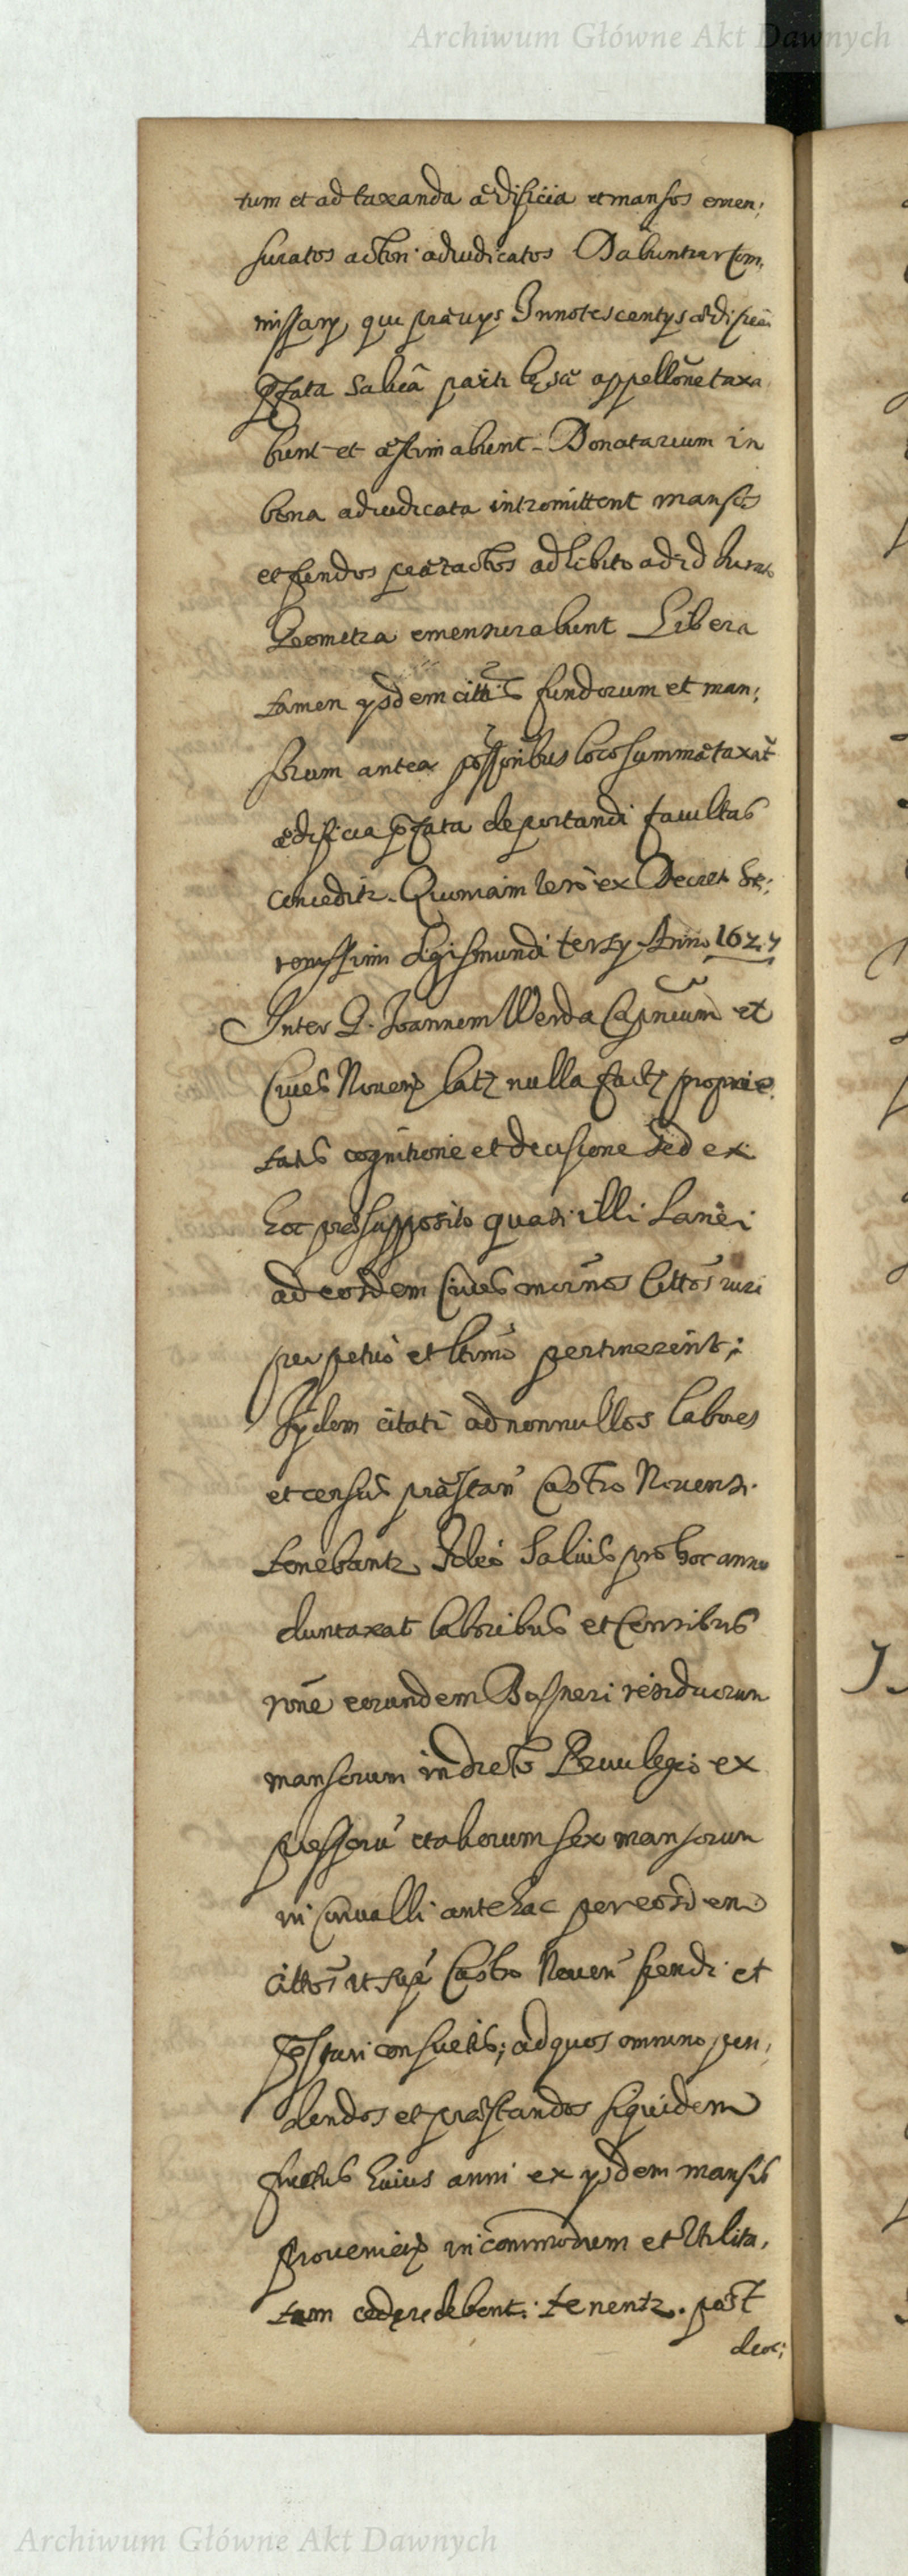 Archiwum Główne Akt Dawnych
tum et ad taxanda ædificia et mansos emen;
suratos actori adiudicatos Dabuntur Com,
missarÿ, qui prævÿs Innotescentÿs ædificia
pfata salvâ parti læsæ appellõne taxa
bunt et æstimabunt. Donatarium in
bona adiudicata intromittent mansos
et fundos ad libito ad id
Geometra emensurabunt Libera
tamen ÿsdem fundorum et man;
sorum antea possoribus loco summæ taxat
ædificia pfata deportandi facultas
conceditr. Quoniam vero ex Decreto Se;
renissimi Sigismundi tertÿ Anno 1627
Inter G. Joannem Werda et
Cives Noven latt nulla facta proprie,
tatis cognitione et decisione Sed ex
hoc præsupposito quasi illi Lanei
ad eosdem Cives cittos iure
perpetuo et ltimo pertinerent;
Iÿdem citati ad nonnullos labores
et census præstan Castro Novensi
tenebantr Ideo Salvis pro hoc anno
duntaxat laboribus et Censibus
rone eorundem residuorum
mansorum in dicto Privilegio ex
pressoru sex mansorum
in Convalli antehac per eosdem
cittos ut supr Castro Noven pendi et
pstari consuetis; ad quos omnino pen;
dendos et præstandos siquidem
fructus huius anni ex ÿsdem mansis
in commodum et Utilita,
tem cedere debent. tenentr. post
Archiwum Główne Akt Dawnych